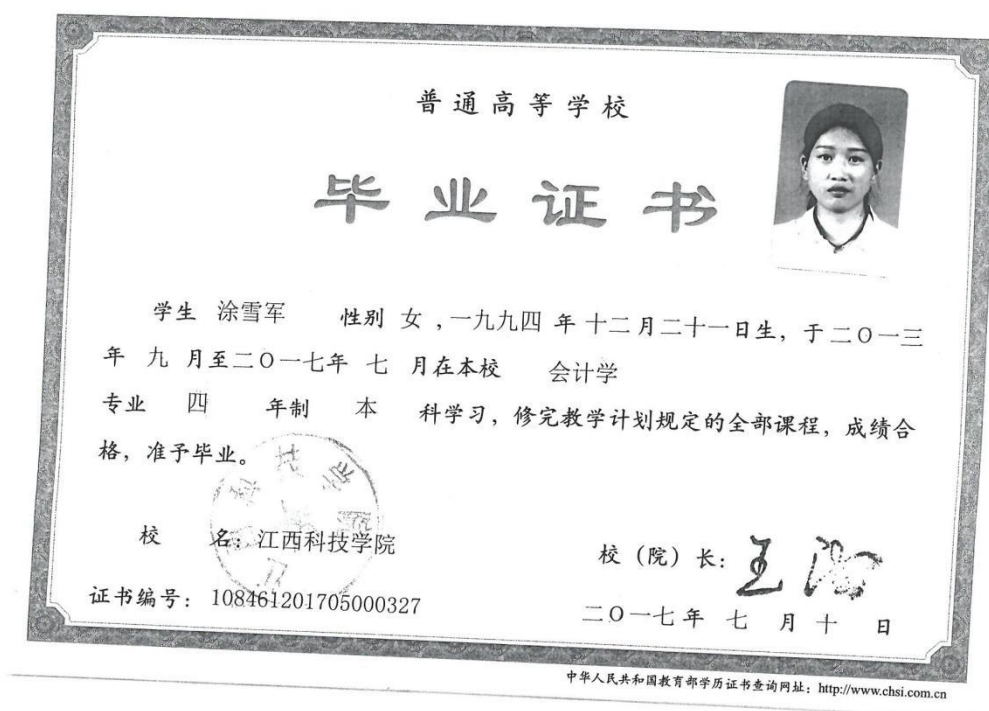 普通高等学校
毕业证书
学生 涂雪军 性别 女 ,一九九四 年 十二月二十一日生，于二〇一三
年 九 月至二〇一七年 七 月在本校 会计学
专业 四 年制 本 科学习，修完教学计划规定的全部课程，成绩合
格，准予毕业。
校 名：江西科技学院
校（院）长：
证书编号：108461201705000327
二〇一七年 七 月 十 日
中华人民共和国教育部学历证书查询网址：http://www.chsi.com.cn